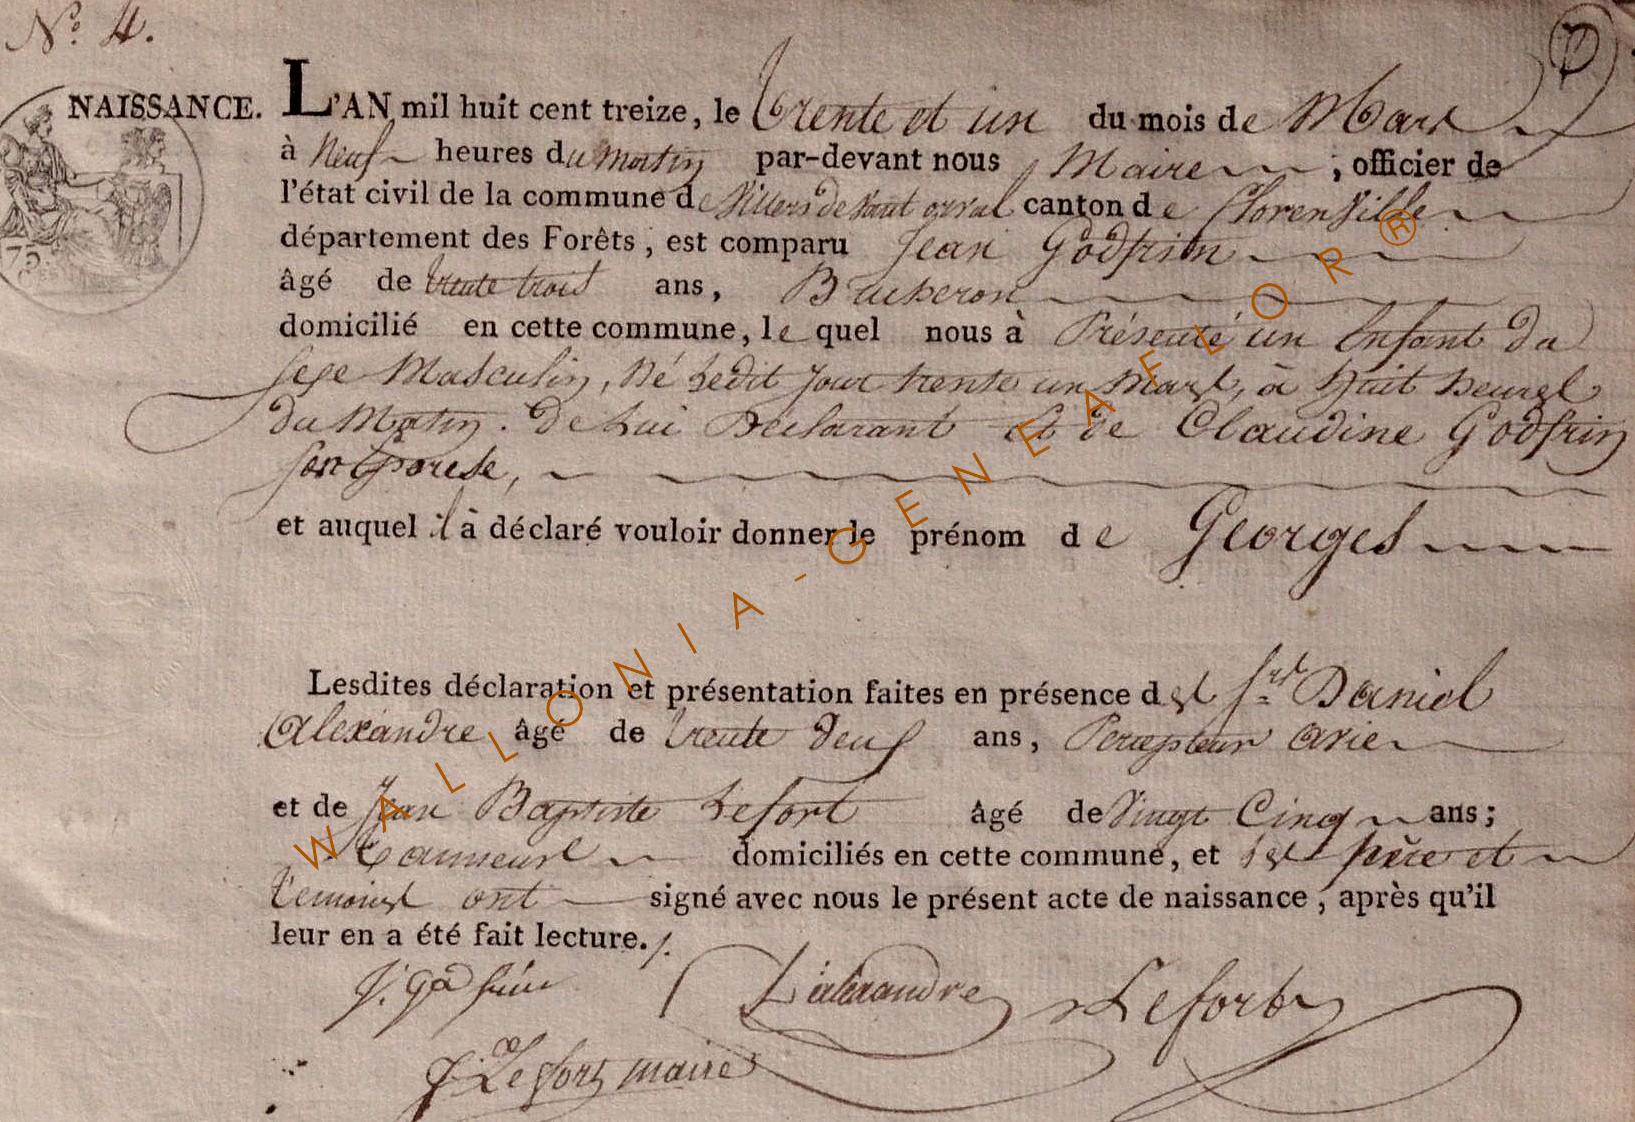 N.° 4.
NAISSANCE. L'AN mil huit cent treize, le trente et un du mois de Mars
à Neuf heures du Matin par-devant nous Maire, officier de
l'état civil de la commune de Villers devant orval canton de florenville
département des Forêts, est comparu Jean Godfrin
âgé de trente trois ans, Bucheron
domicilié en cette commune, le quel nous à Présenté un Enfant du
sexe Masculin, Né Ledit Jour trente un Mars, à Huit heures
du Matin. De Lui Déclarant Et de Claudine Godfrin
son Epouse,
et auquel il à déclaré vouloir donner le prénom de Georges
Lesdites déclaration et présentation faites en présence des Srs Daniel
Alexandre âgé de trente deux ans, Percepteur
et de Jean Baptiste Lefort âgé de Vingt Cinq ans;
Tanneur domiciliés en cette commune, et les père et
témoins ont signé avec nous le présent acte de naissance, après qu'il
leur en a été fait lecture./.
J. Godfrin Lefort
Lefort maire
75
WALLONIA-GENEAFLOR®